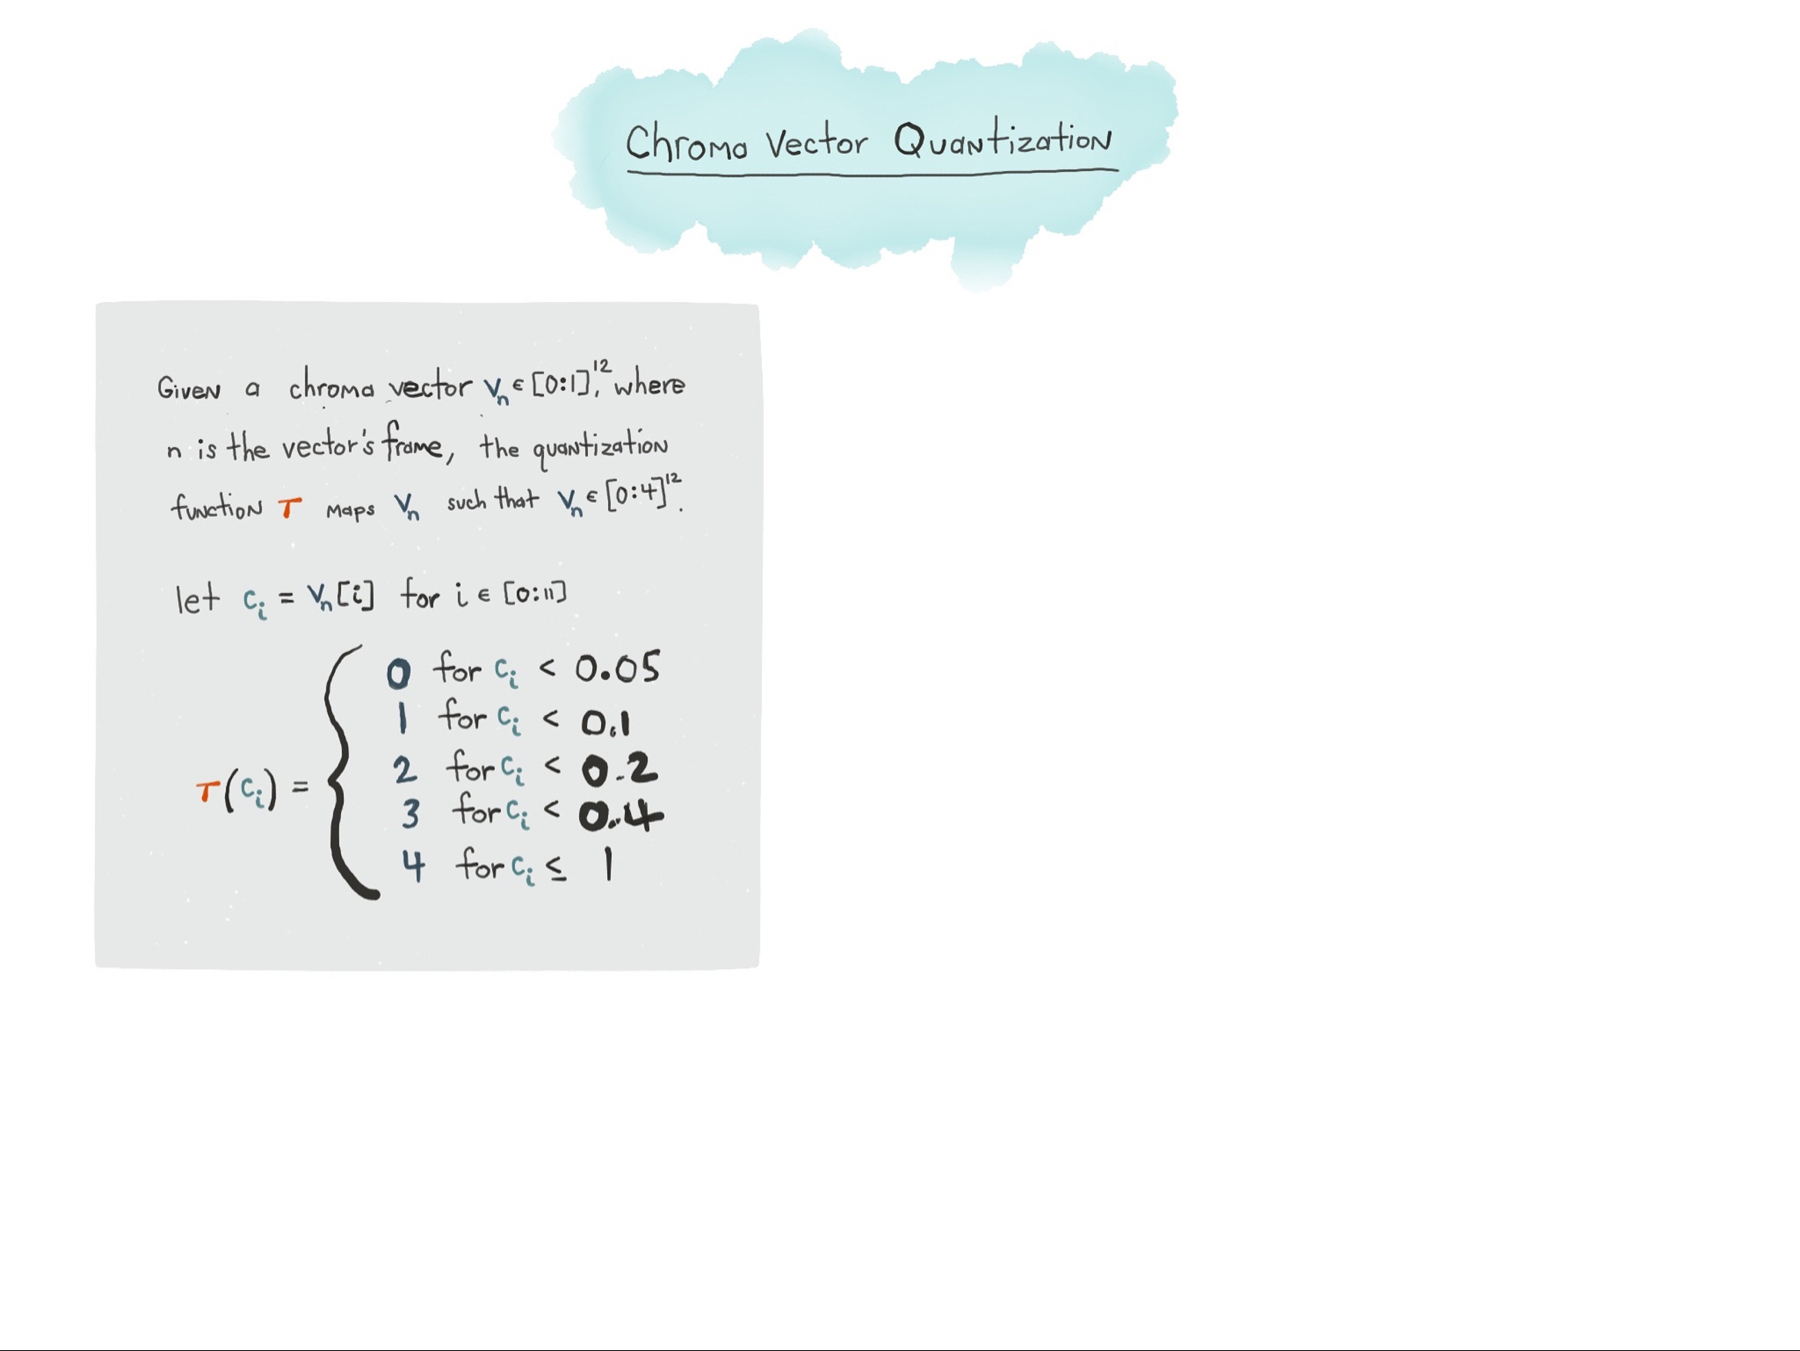 Chroma Vector Quantization
Given a chroma vector Vₙ ∈ [0:1]¹², where
n is the vector's frame, the quantization
function τ maps Vₙ such that Vₙ ∈ [0:4]¹².
let cᵢ = Vₙ[i] for i ∈ [0:11]
0 for cᵢ < 0.05
1 for cᵢ < 0.1
2 for cᵢ < 0.2
τ(cᵢ) =
3 for cᵢ < 0.4
4 for cᵢ ≤ 1